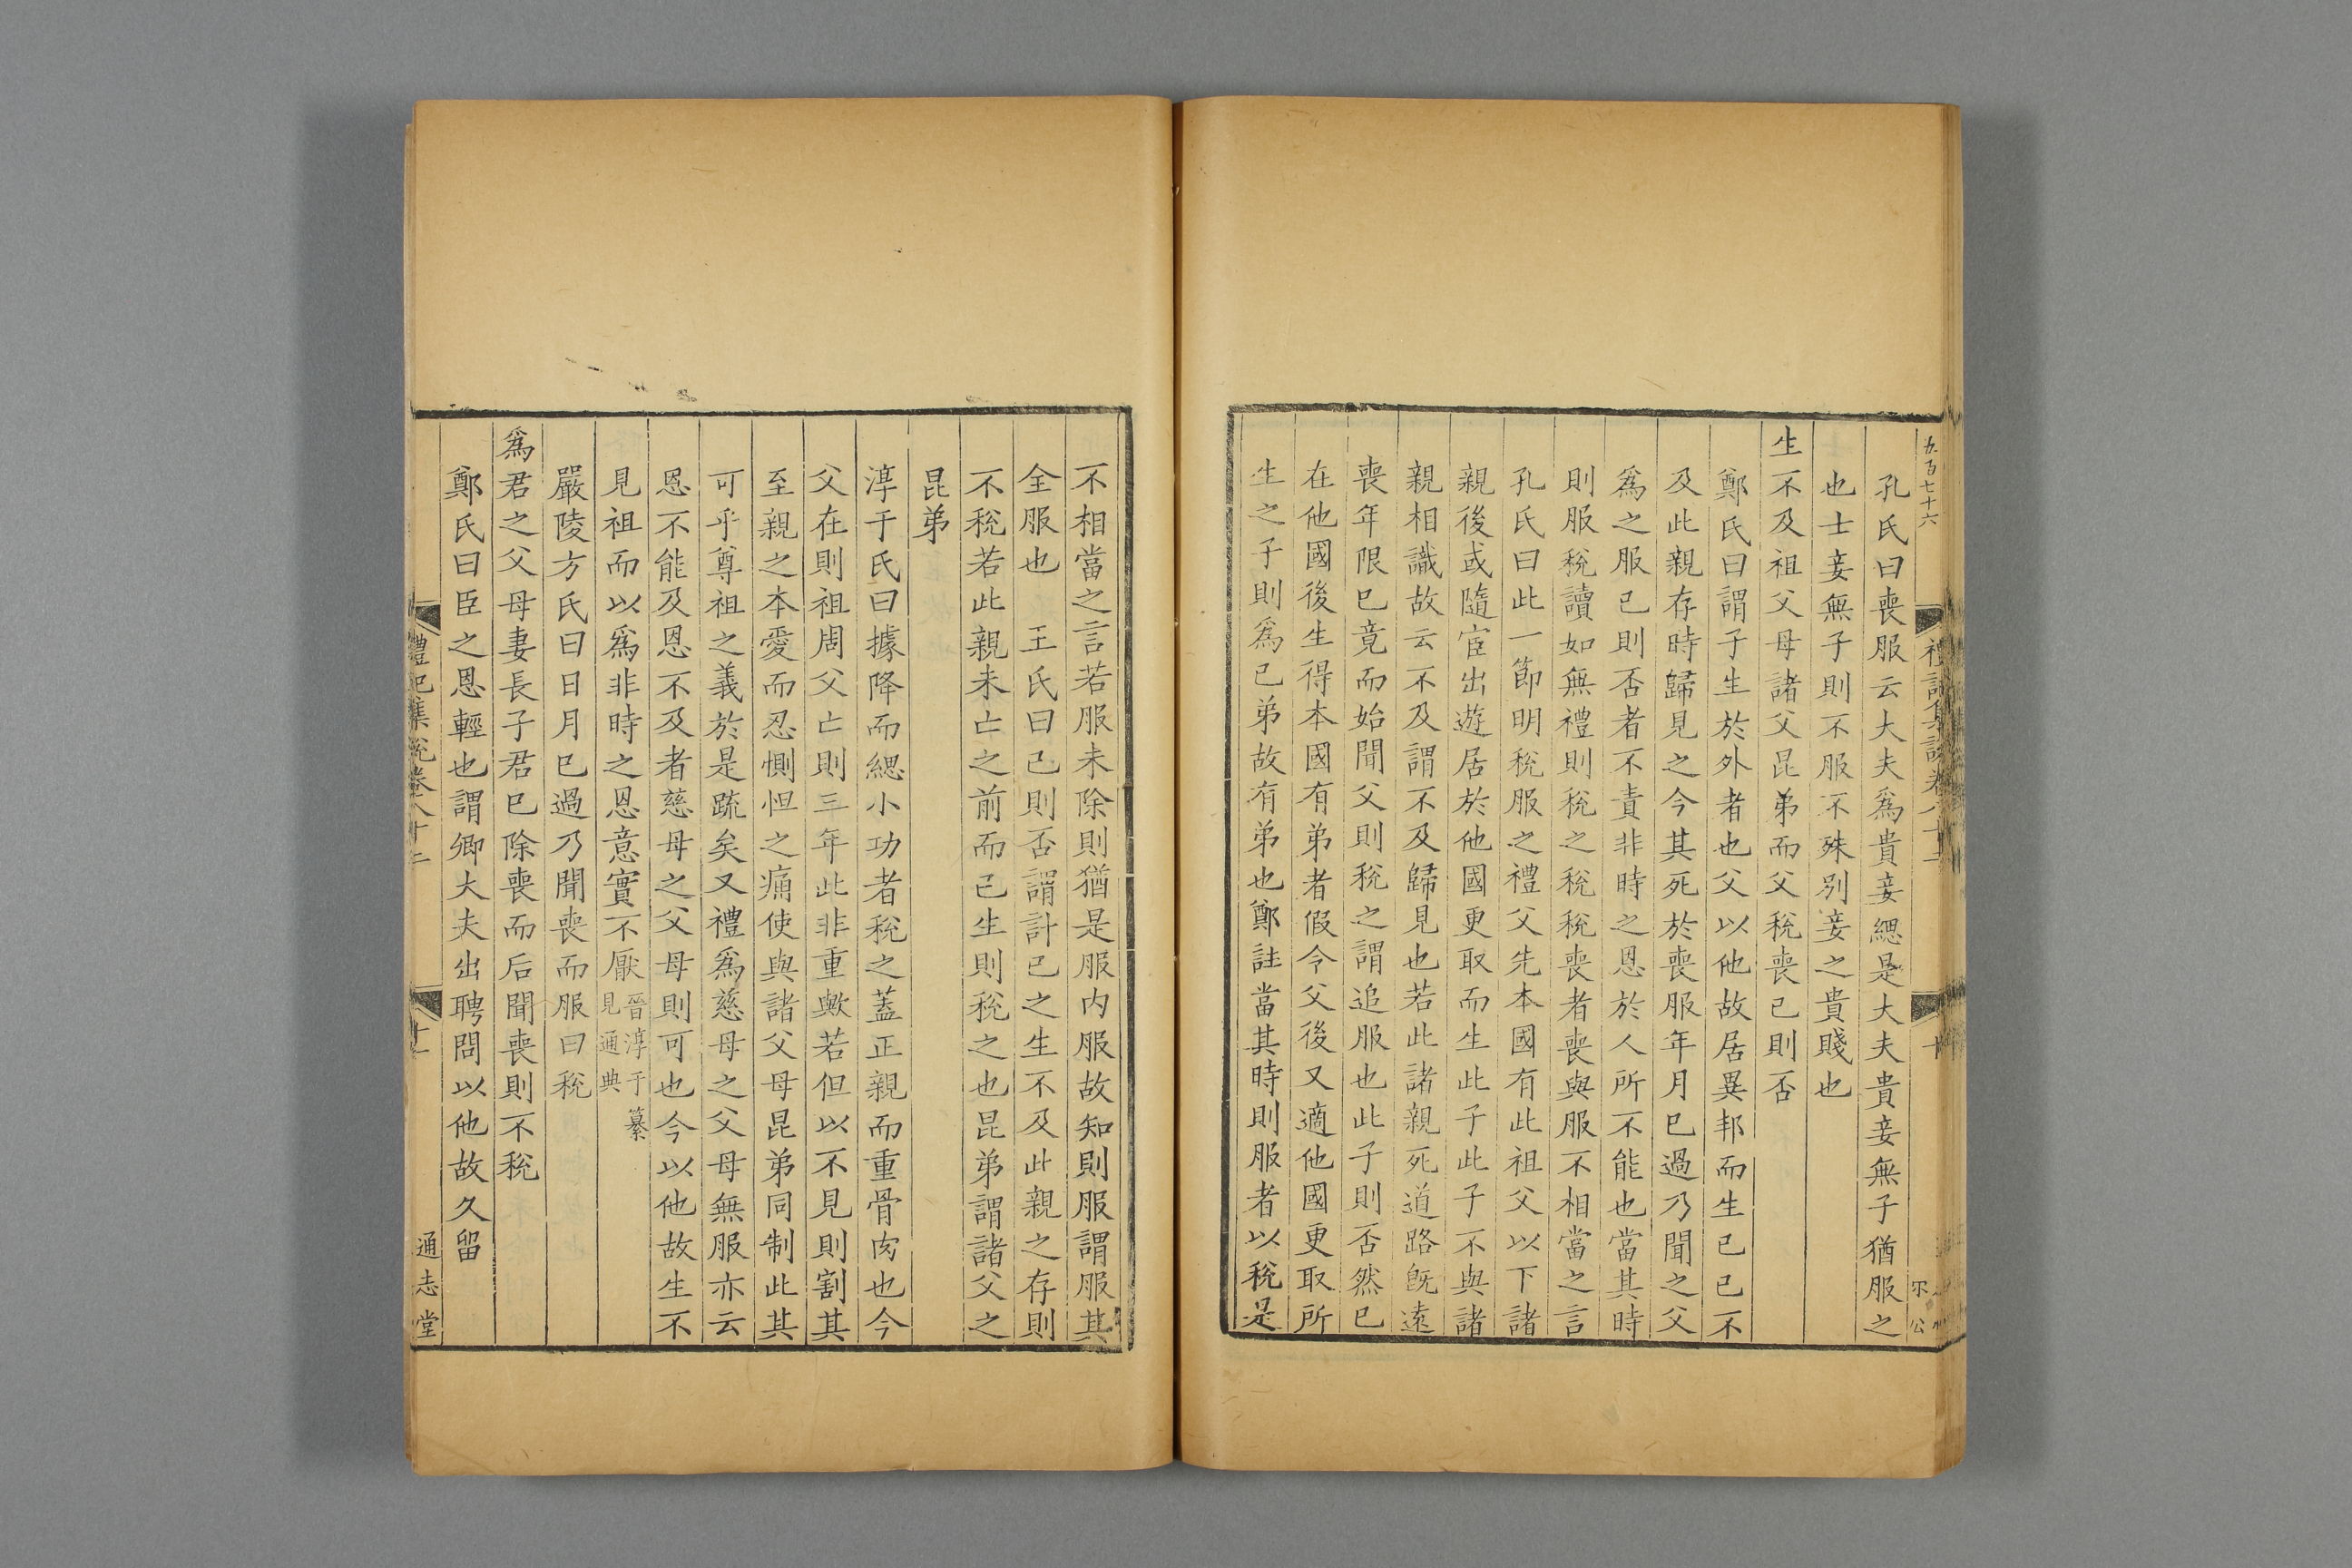 孔氏曰喪服云大夫爲貴妾緦是大夫貴妾無子猶服之
也士妾無子則不服不殊別妾之貴賤也
生不及祖父母諸父昆弟而父稅喪己則否
鄭氏曰謂子生於外者也父以他故居異邦而生己己不
及此親存時歸見之今其死於喪服年月已過乃聞之父
爲之服己則否者不責非時之恩於人所不能也當其時
則服稅讀如無禮則稅之稅稅喪者喪與服不相當之言
孔氏曰此一節明稅服之禮父先本國有此祖父以下諸
親後或隨宦出遊居於他國更取而生此子此子不與諸
親相識故云不及謂不及歸見也若此諸親死道路旣遠
喪年限已竟而始聞父則稅之謂追服也此子則否然已
在他國後生得本國有弟者假令父後又適他國更取所
生之子則爲已弟故有弟也鄭註當其時則服者以稅是
不相當之言若服未除則猶是服內服故知則服謂服其
全服也　王氏曰己則否謂計己之生不及此親之存則
不稅若此親未亡之前而己生則稅之也昆弟謂諸父之
昆弟
淳于氏曰據降而緦小功者稅之蓋正親而重骨肉也今
父在則祖周父亡則三年此非重歟若但以不見則割其
至親之本愛而忍惻怛之痛使與諸父母昆弟同制此其
可乎尊祖之義於是疏矣又禮爲慈母之父母無服亦云
恩不能及恩不及者慈母之父母則可也今以他故生不
見祖而以爲非時之恩意實不厭晉淳于纂
見通典
嚴陵方氏曰日月已過乃聞喪而服曰稅
爲君之父母妻長子君已除喪而后聞喪則不稅
鄭氏曰臣之恩輕也謂卿大夫出聘問以他故久留
禮記集說卷八十二
十一
通志堂